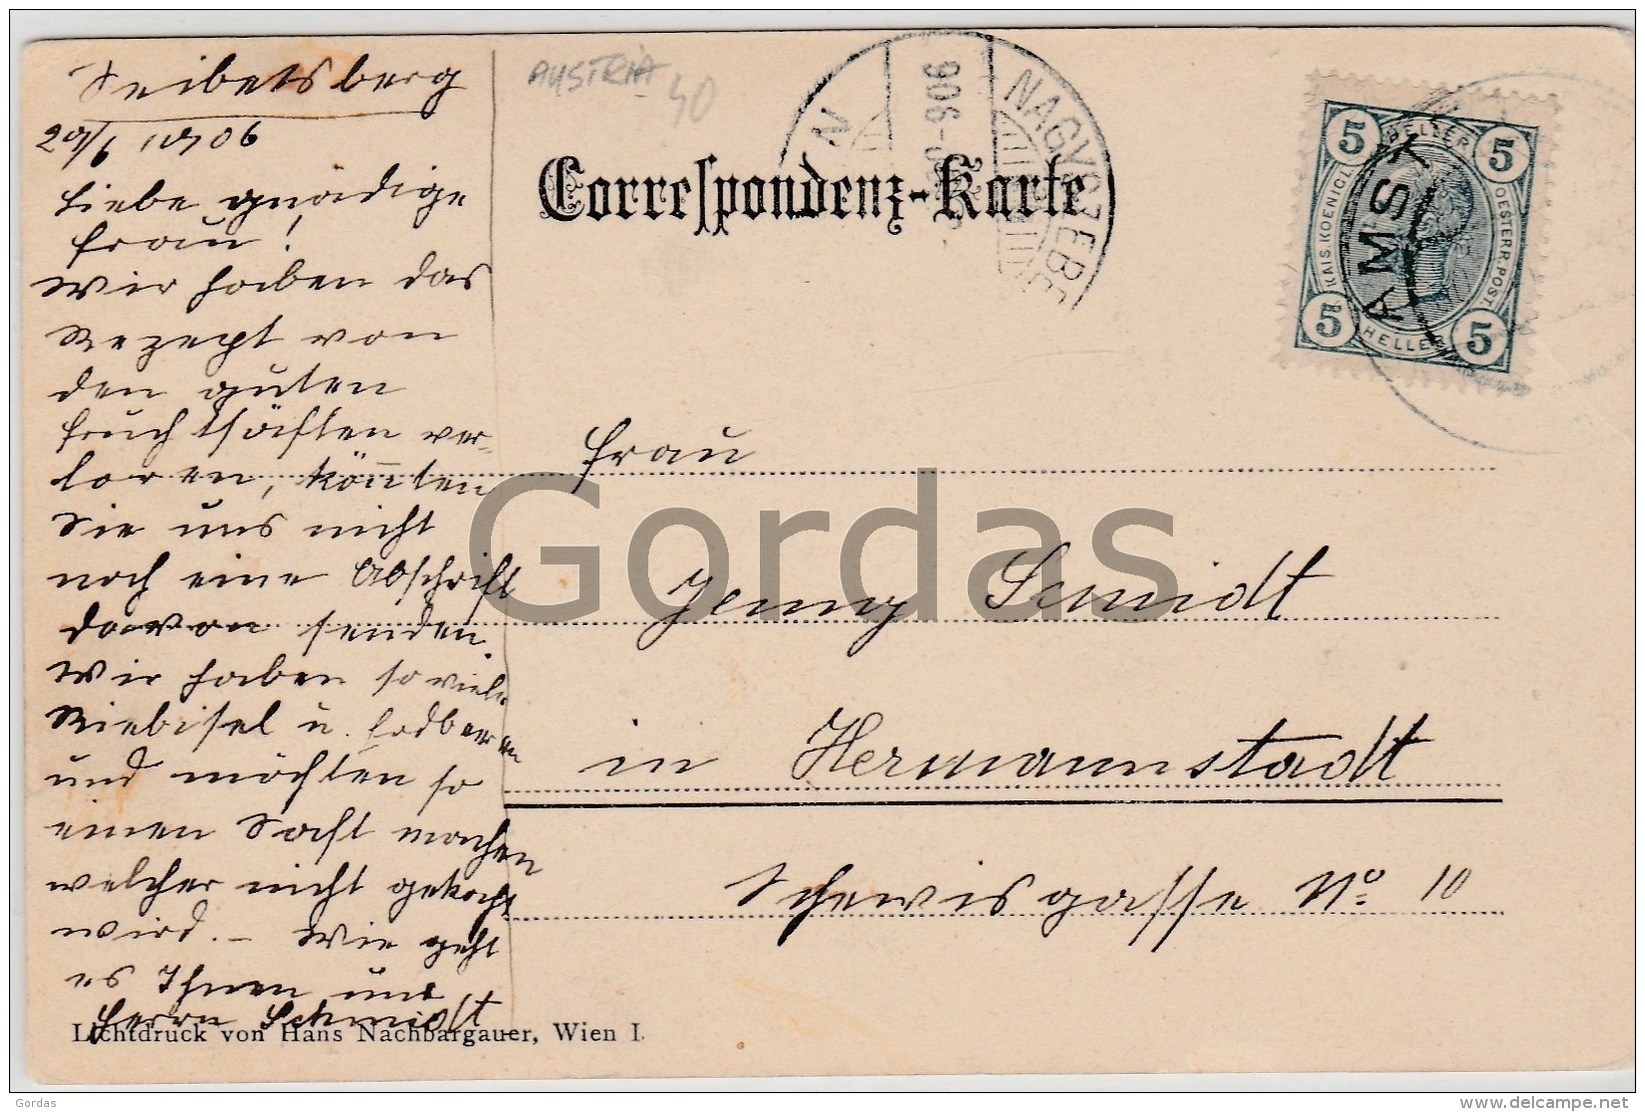 Seibetsberg
29/6 1906
Liebe gnädige
Frau!
Wir haben das
Rezept von
den guten
Fruchtsäften ver-
loren, könnten
Sie uns nicht
noch eine Abschrift
davon senden.
Wir haben so viele
Riebisel u. Erdbeeren
und möchten so
einen Saft machen
welcher nicht gekocht
wird. – Wie geht
es Ihnen und
Herrn Schmidt
Lichtdruck von Hans Nachbargauer, Wien I.
AUSTRIA 40
906
NAGYSZEBEN
Correspondenz-Karte
5 HELLER 5
KAIS. KOENIGL. OESTERR. POST.
5 HELLER 5
AMST
Frau
Jenny Scmidt
in Hermannstadt
Schewisgasse No. 10
Gordas
Gordas
delcampe.net